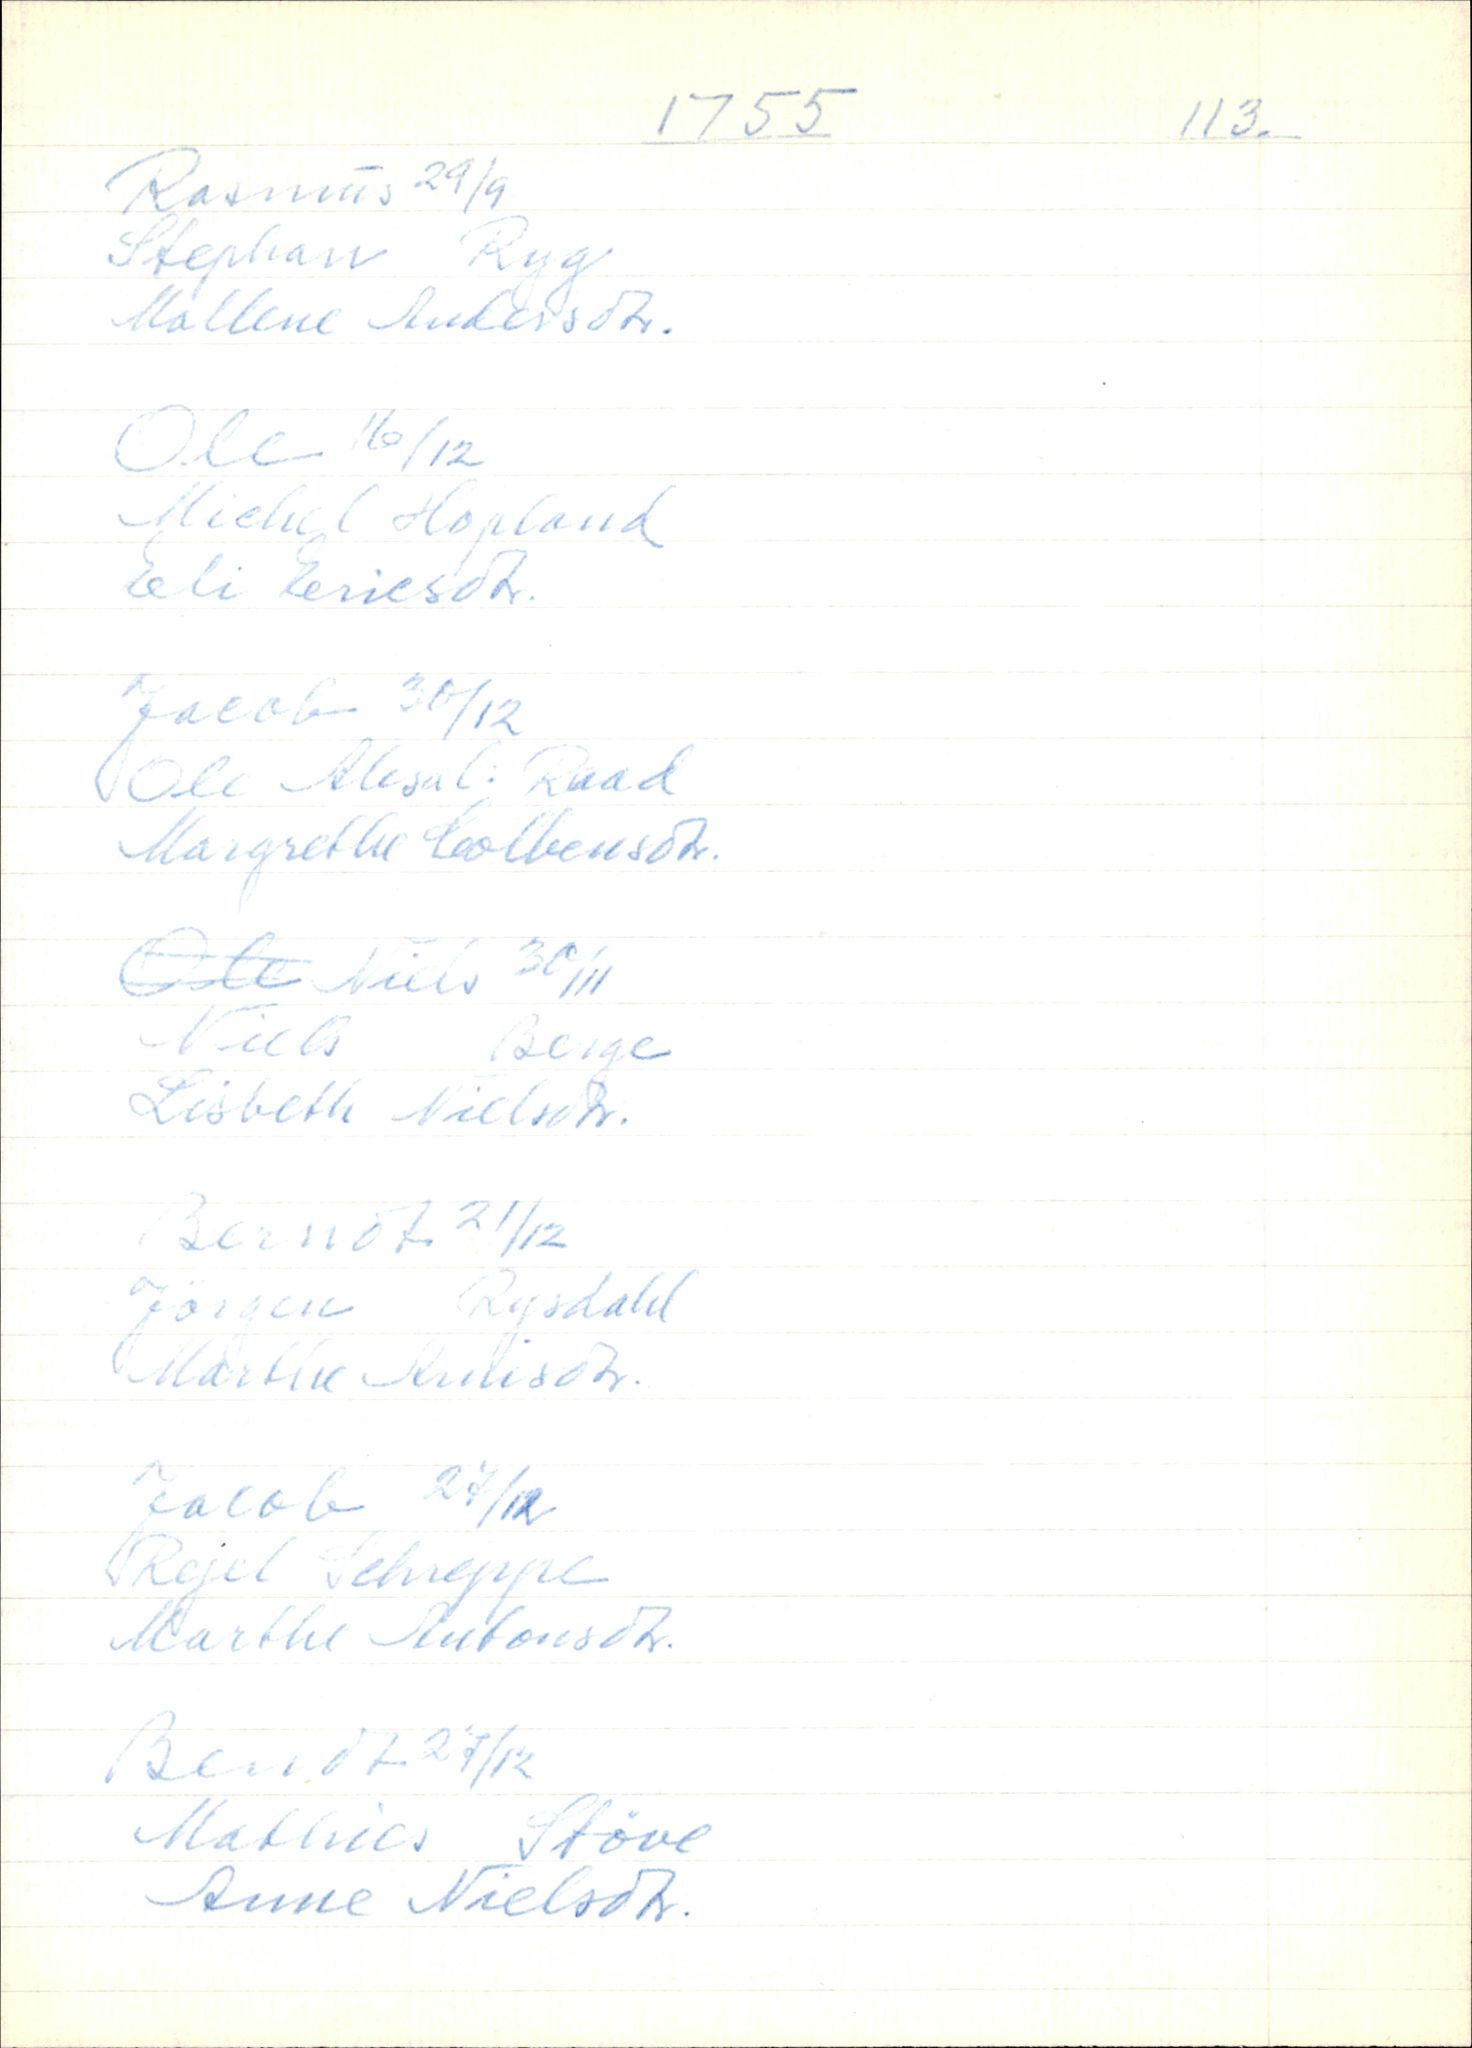 1755 113.
Rasmus 29/9
Stephan Ryg
Mallene Andersdtr.
Ole 16/12
Michel Hopland
Eli Ericsdtr.
Jacob 30/12
Ole Raad
Margrethe Colbensdtr.
Ole Niels 30/11
Niels Berge
Lisbeth Nielsdtr.
Berndt 21/12
Jörgen Rysdahl
Marthe
Jacob 27/12
Rejel Schreppe
Marthe Antonsdtr.
Bendt 27/12
Mathies Störe
Anne Nielsdtr.